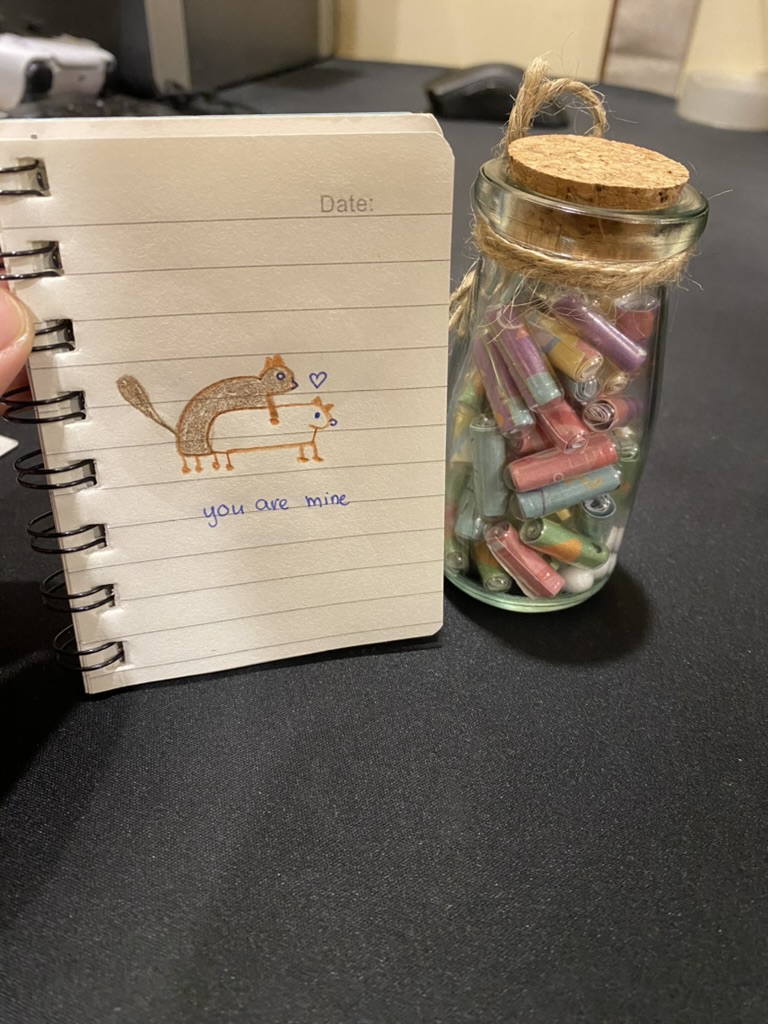 Date:
you are mine